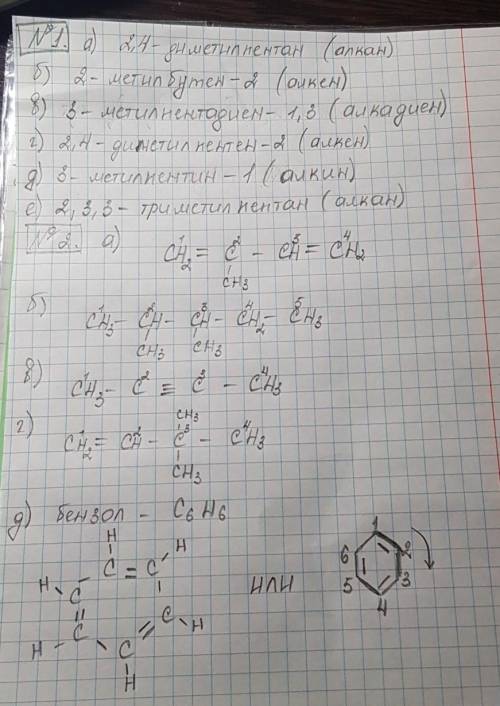 №1. а) 2,4-диметилпентан (алкан)
б) 2-метилбутен-2 (алкен)
в) 3-метилпентадиен-1,3 (алкадиен)
г) 2,4-диметилпентен-2 (алкен)
д) 3-метилпентин-1 (алкин)
е) 2,3,3-триметилпентан (алкан)
№2. а) CH₂ = C - CH = CH₂
1 2 3 4
CH₃
б) CH₃ - CH - CH - CH₂ - CH₃
1 2 3 4 5
CH₃ CH₃
в) CH₃ - C ≡ C - CH₃
1 2 3 4
CH₃
г) CH₂ = CH - C - CH₃
1 2 3 4
CH₃
д) бензол - C₆H₆
H
H C = C H
C C H или
H C C
H
1
6 2
5 3
4